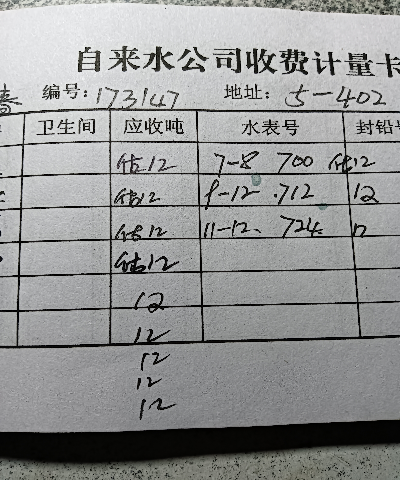 自来水公司收费计量卡
编号:173147 地址:5-402
卫生间 应收吨 水表号 封铅号
估12 7-8 700 估12
估12 9-12 .712 12
估12 11-12. 724. 12
估12
12
12
12
12
12